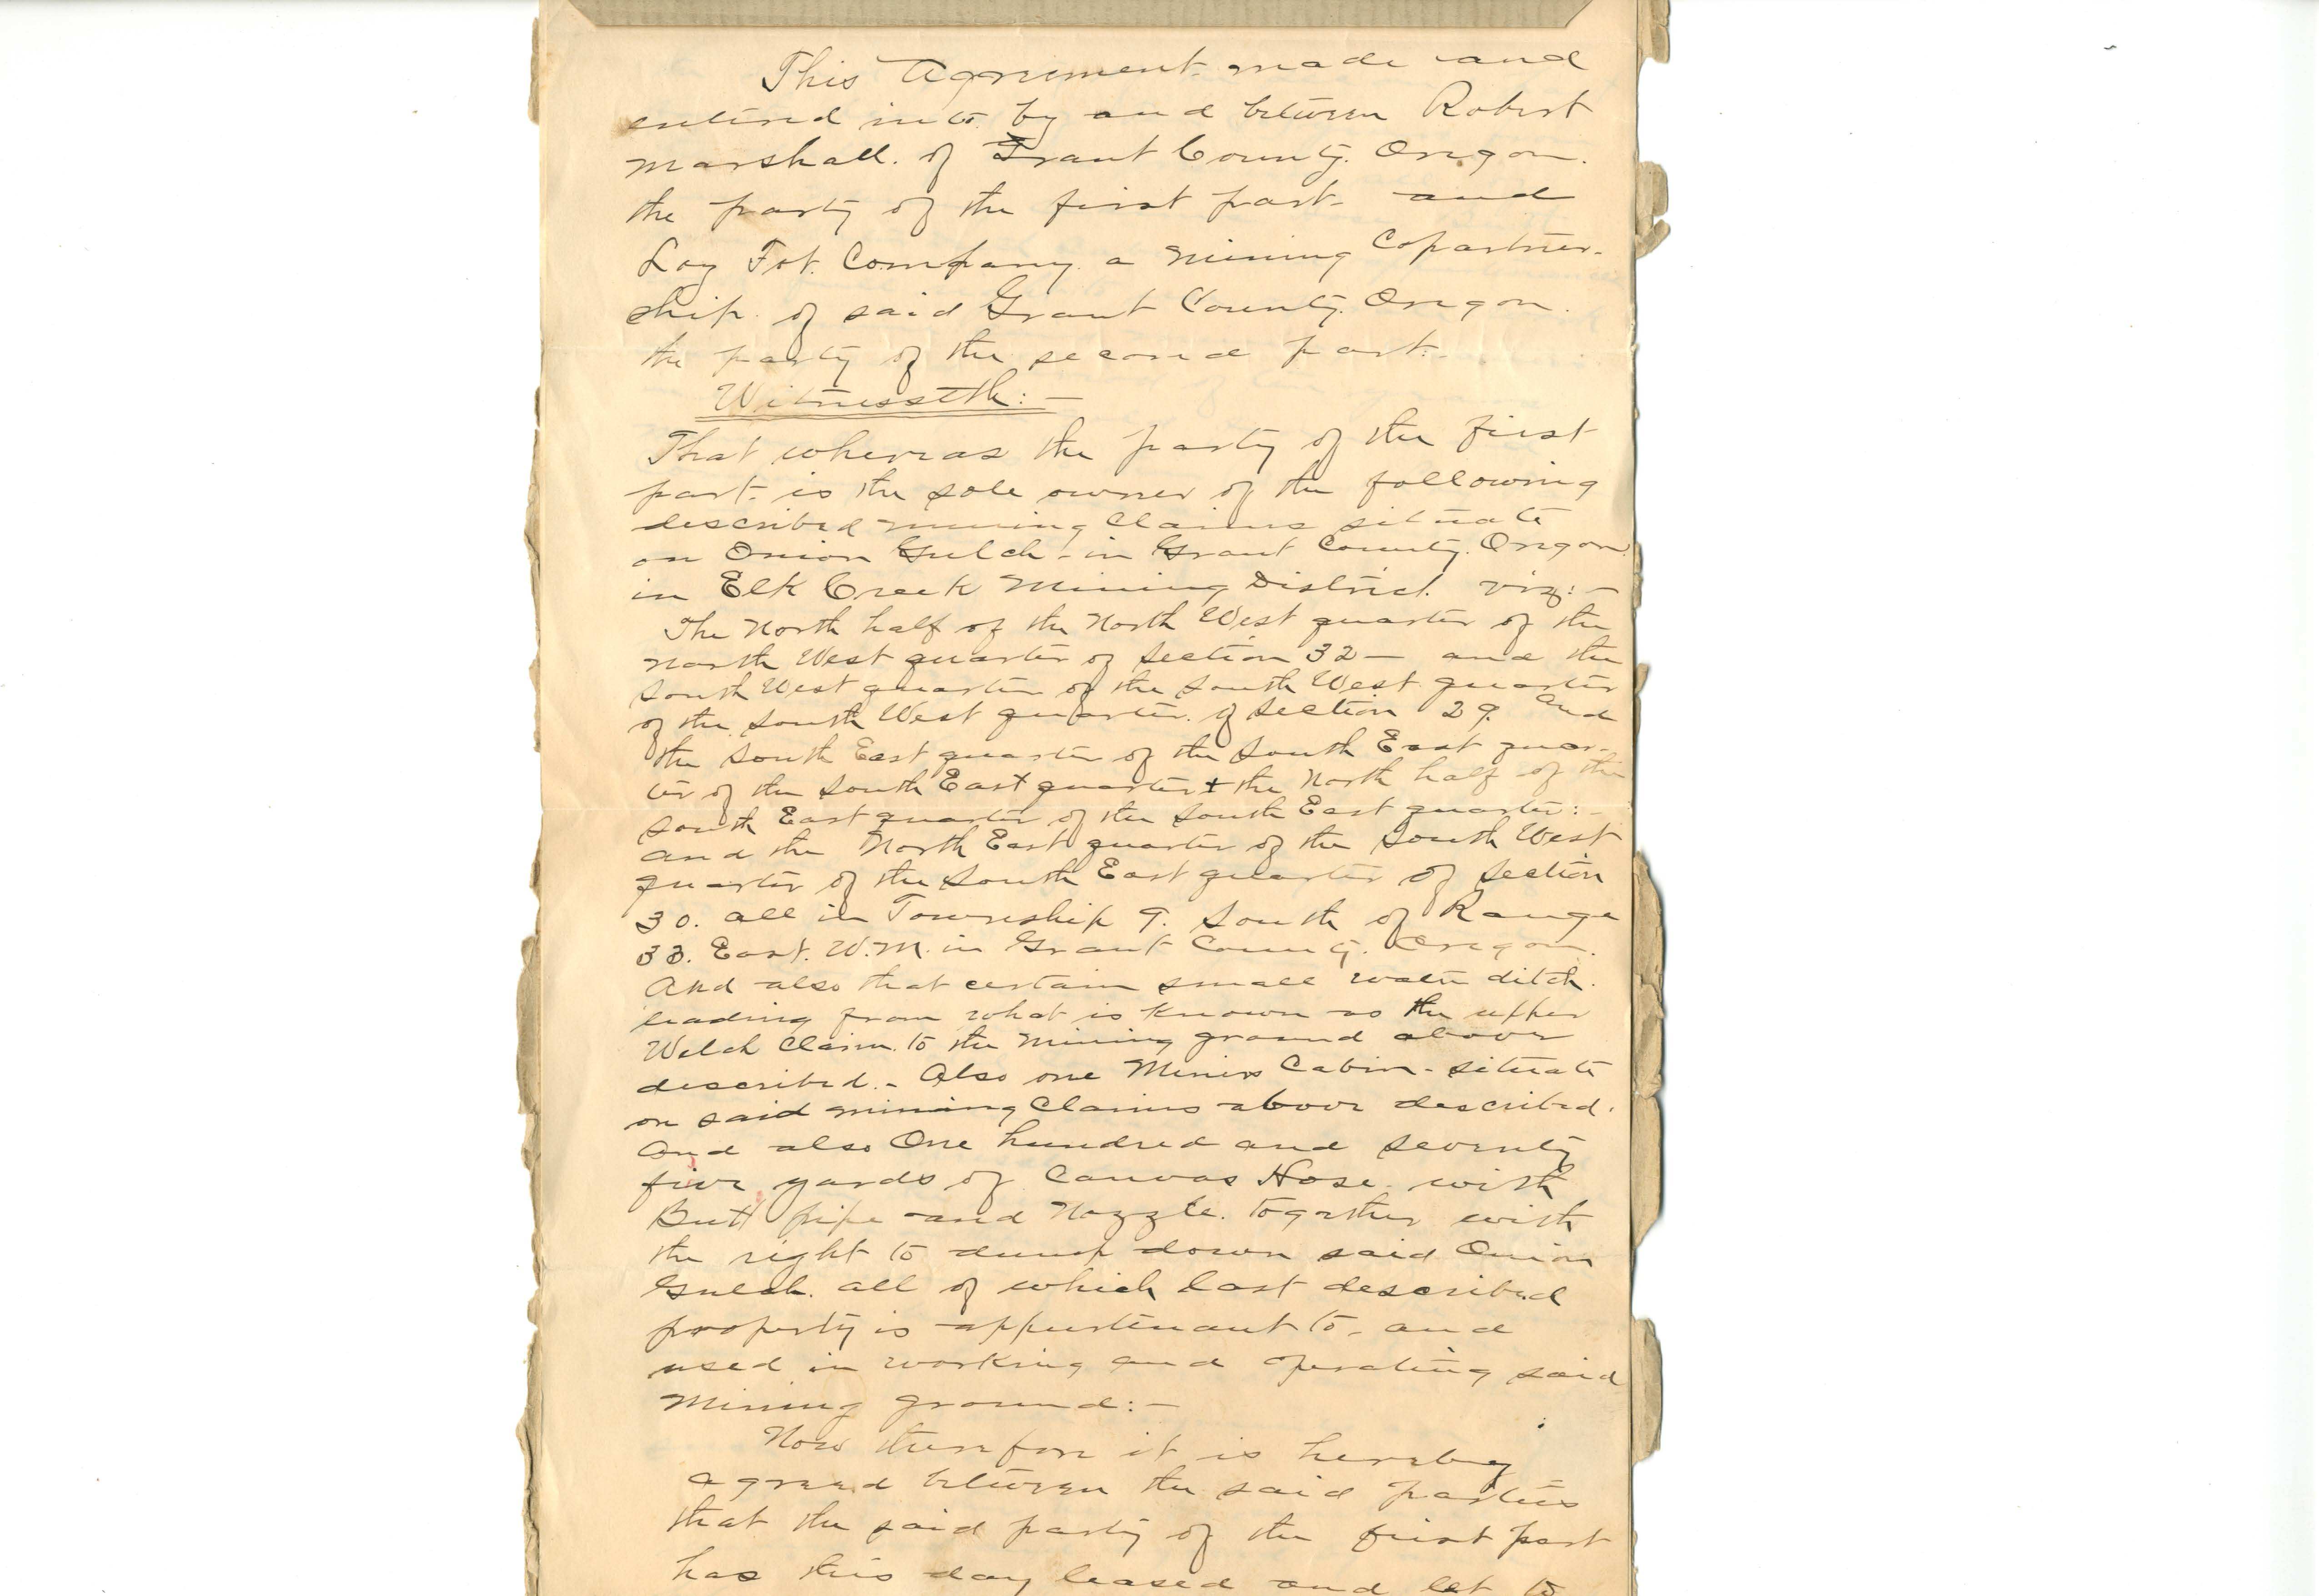 This Agreement made and
entered into by and between Robert
Marshall. of Grant County. Oregon.
the party of the first part- and
Loy Fot. Company. a Mining Copartner-
ship. of said Grant County. Oregon.
the party of the second part:-
Witnesseth:-
That whereas the party of the first
part- is the sole owner of the following
described mining Claims situate
on Onion Gulch- in Grant County. Oregon.
in Elk Creek Mining District. viz:-
The North half of the North West quarter of the
North West quarter of Section 32- and the
South West quarter of the South West quarter
of the South West quarter. of Section 29. And
the South East quarter of the South East quar-
ter of the South East quarter + the North half of the
South East quarter of the South East quarter:-
and the North East quarter of the South West
quarter of the South East quarter of Section
30. all in Township 9. South of Range
33. East. W.M. in Grant County. Oregon.
And also that certain small water ditch.
leading from what is known as the upper
Welch Claim. to the Mining ground above
described.- Also one Miners Cabin- situate
on said mining Claims above described.
And also One hundred and seventy
five yards of Canvas Hose. with
Butt pipe and Nozzle. together with
the right to dump down said Onion
Gulch. all of which last described
property is appurtenant to- and
used in working and operating said
Mining ground:-
Now therefore it is hereby
agreed between the said parties
that the said party of the first part
has this day leased and let to